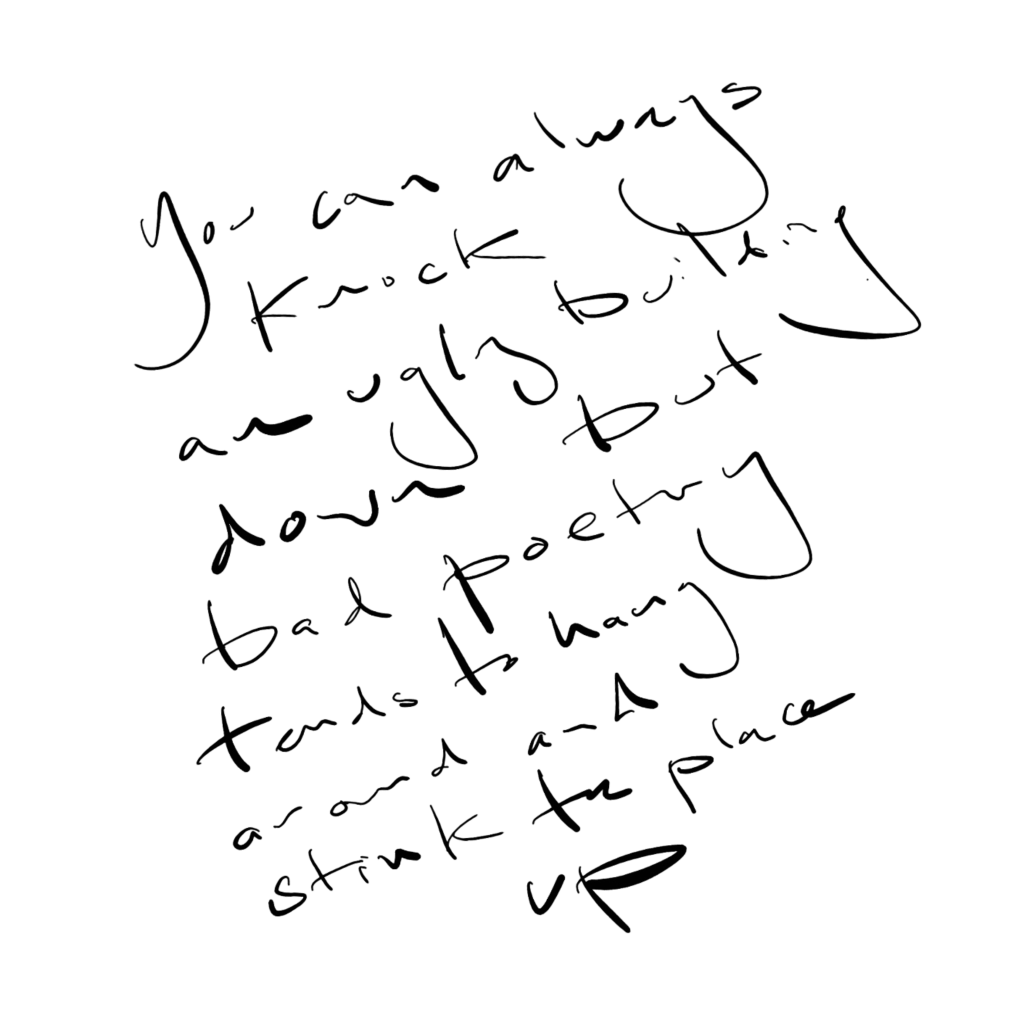 You can always
knock
an ugly building
down but
bad poetry
tends to hang
around and
stink the place
up